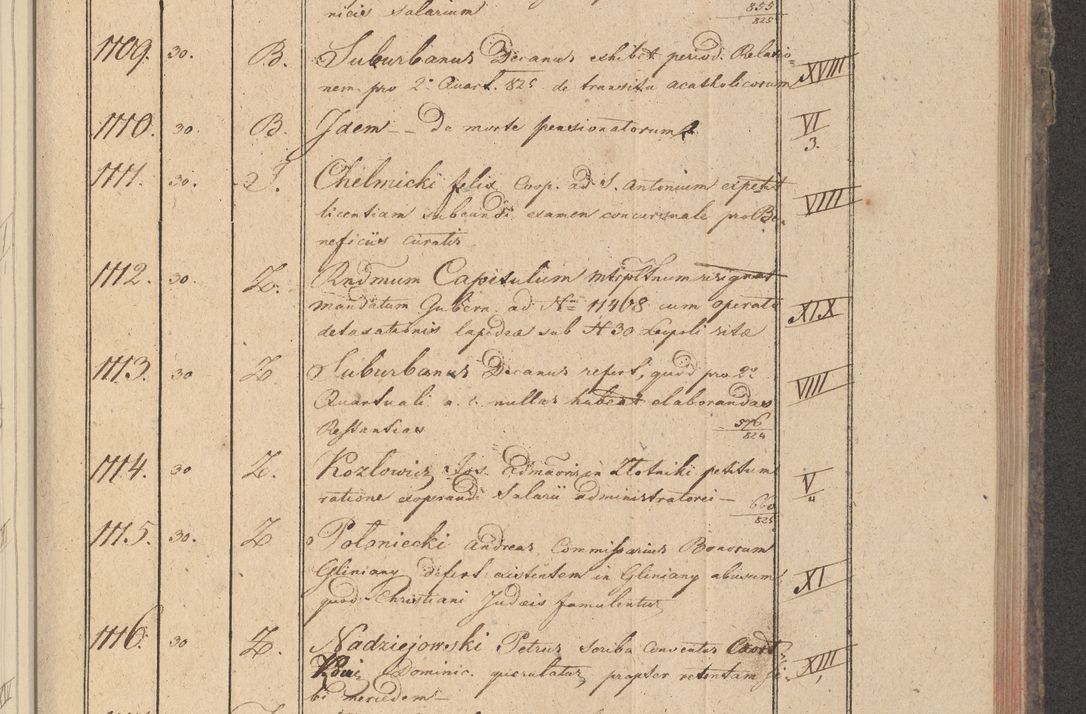 nicis Salarium 855/825
1109. 30. B. Suburbanus Decanus exhibet period. Relatio-
nem pro 2° Quart. 825 de transitu acatholicorum XVIII
1110. 30. B. Idem — De morte pensionatorum VI/3.
1111. 30. J. Chelmicki felix Coop. ad S. Antonium expetit
licentiam subeundi examen concursuale pro Be- VIII
neficiis curatis
1112. 30 Z. Rndmum Capitulum resignat
mandatum Gubern. ad Nrum 11468 cum operato XIX
detaxationis lapideae sub N 30 Leopoli sitae
1113. 30 Z. Suburbanus Decanus refert, quod pro 2°
Quartuali a. c. nullas habeat elaborandas VIII
Restantias 576/824
1114. 30 Z. Kozlowicz Jos. in Zlotniki petitum
ratione Salarii administratorei — V
660/825
1115. 30. Z Potoniecki Andreas Commissarius Bonorum
Gliniany defert existentem in Gliniany abusum XI
quod Christiani Judaeis famulentur
1116. 30 Z. Nadziejowski Petrus scriba Conventus
Dominic. querulatur propter retentam si- XIII
bi mercedem —